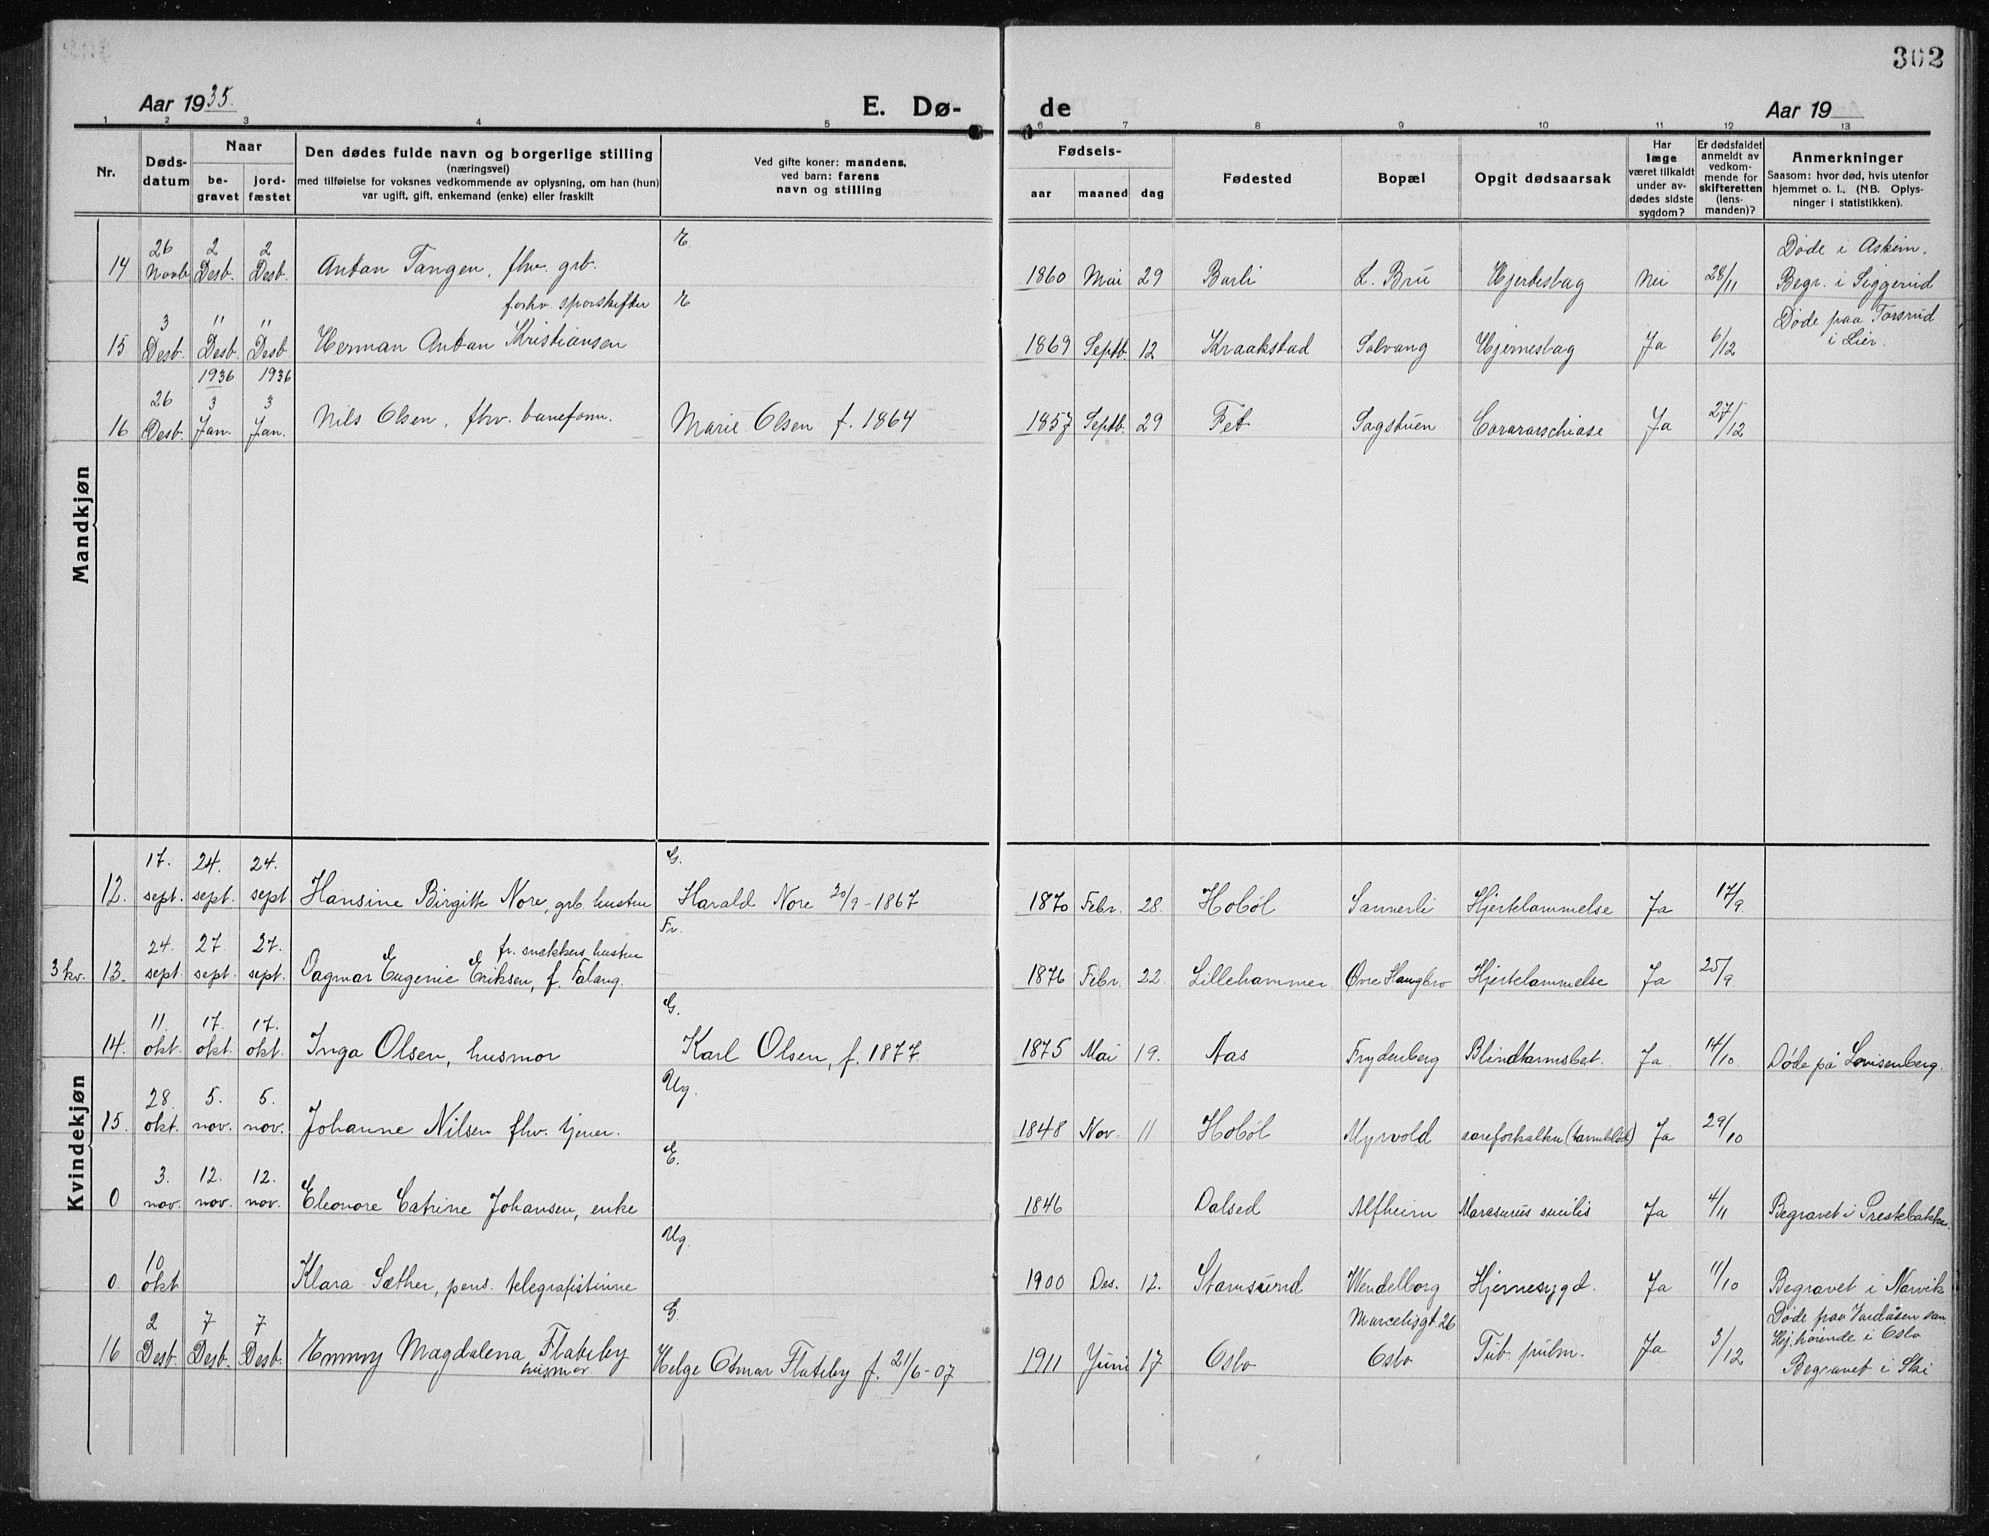 302
Aar 1935.
E. Dø-
de
Aar 19
1 2 3 4 5 6 7 8 9 10 11 12 13
Nr.
Døds-
datum
Naar
be-
gravet
jord-
fæstet
Den dødes fulde navn og borgerlige stilling
(næringsvei)
med tilføielse for voksnes vedkommende av oplysning, om han (hun)
var ugift, gift, enkemand (enke) eller fraskilt
Ved gifte koner: mandens,
ved barn: farens
navn og stilling
Fødsels-
aar maaned dag
Fødested
Bopæl
Opgit dødsaarsak
Har
læge
været tilkaldt
under av-
dødes sidste
sygdom?
Er dødsfaldet
anmeldt av
vedkom-
mende for
skifteretten
(lens-
manden)?
Anmerkninger
Saasom: hvor død, hvis utenfor
hjemmet o. l., (NB. Oplys-
ninger i statistikken).
Mandkjøn
14 26 Novb. 2 Desb. 2 Desb. Anton Tangen, fhv. grb. E 1860 Mai 29 Barli L. Bru Hjerteslag Nei 28/11 Døde i Askim.
Begr. i Siggerud
15 3 Desb. 11 Desb. 11 Desb. forhv. sporskifter
Herman Anton Kristiansen E 1869 Septb. 12 Kraakstad Solvang Hjerneslag Ja 6/12 Døde paa Torsrud
i Lier.
16 26 Desb. 1936 3 Jan. 1936 3 Jan. Nils Olsen, fhv. baneform. Marie Olsen f. 1864 1857 Septb. 29 Fet Sagstuen Ja 27/12
Kvindekjøn
12. 17. sept. 24. sept. 24. sept Hansine Birgitte Nore, grb. hustru G. Harald Nore 30/9-1867 1870 Febr. 28. Hobøl Sannerli Hjertelammelse Ja 17/9
3 kv. 13. 24. sept. 27 sept. 27. sept. fr. snekkers hustru
Dagmar Eugenie Eriksen, f. Falang. Fr. 1876 Febr. 22. Lillehammer Øvre Haugbro Hjertelammelse Ja 25/9.
14. 11. okt. 17. okt. 17. okt. Inga Olsen, husmor G. Karl Olsen, f. 1877 1875 Mai 19. Aas Frydenberg Blindtarmsbet. Ja 14/10. Døde på Lovisenberg.
15. 28. okt. 5. nov. 5. nov. Johanne Nilsen fhv. tjener. Ug. 1848 Nov. 11. Hobøl Myrvold Ja 29/10
0 3. nov. 12. nov. 12. nov. Eleonore Catrine Johansen, enke E. 1846 Dalsed Alfheim Marasmus senilis Ja 4/11 Begravet i Prestebakke.
0. 10 okt Klara Sæther, pens. telegrafistinne Ug. 1900 Des. 12. Stamsund Wendelborg Hjernesygd. Ja 11/10 Begravet i Narvik
16 2 Desb. 7 Desb. 7 Desb. Emmy Magdalena Flateby
husmor G. Helge Otmar Flateby f. 21/6-07 1911 Juni 17 Oslo Marcelisgt 26
Oslo Tub. pulm. Ja 3/12 Døde paa Vardåsen san.
Hjhørende i Oslo
Begravet i Ski